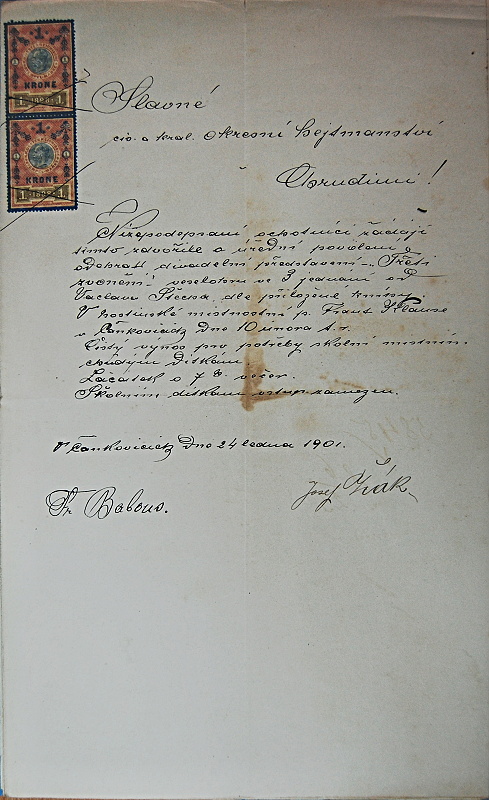 1
KRONE
1 1898 1
1
KRONE
1 1898 1
Slavné
cís. a král. okresní hejtmanství
Chrudimi!
Nížepodepsaní ochotníci žádají
tímto zdvořile o úřední povolení k
odehrátí divadelní představení „Třetí
zvonění" veselohru ve 3 jednání od
Václava Štecha, dle přiložené knihy.
V hostinské místnosti p. Frant. Klause
v Čankovicích dne 10 února t.r.
Čistý výnos pro potřeby školní místním
chudým dítkám.
Začátek o 7 h. večer.
Školním dítkám vstup zamezen.
V Čankovicích dne 24 ledna 1901.
Fr.
Josef Žák